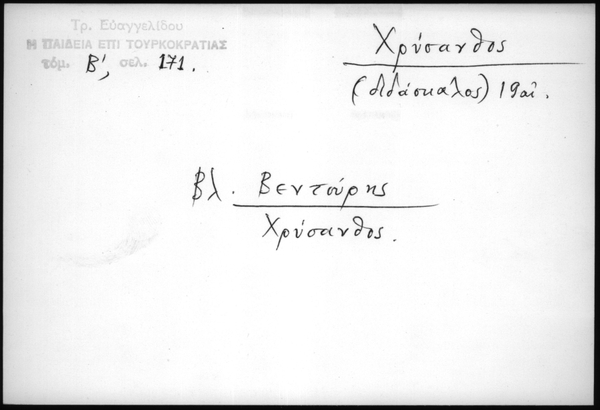 Τρ. Εὐαγγελίδου
Η ΠΑΙΔΕΙΑ ΕΠΙ ΤΟΥΡΚΟΚΡΑΤΙΑΣ
τόμ. Β', σελ. 171.
Χρύσανθος
(διδάσκαλος) 19αἰ.
Βλ. Βεντούρης
Χρύσανθος.